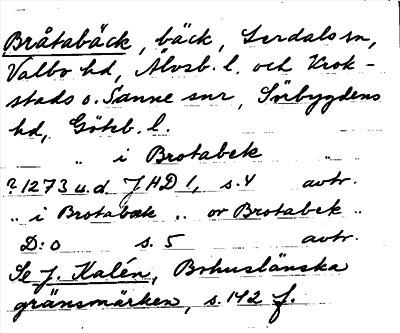 Bråtabäck, bäck, Lerdals sn,
Valbo hd, Älvsb. l. och Krok-
stads o. Sanne snr, Sörbygdens
hd, Götb. l.
" i Brotabek "
? 1273 u.d. JHD 1, s. 4 avtr.
" i Brotabæk " or Brotabek "
D:o s. 5 avtr.
Se J. Kalén, Bohuslänska
gränsmärken, s. 142 f.